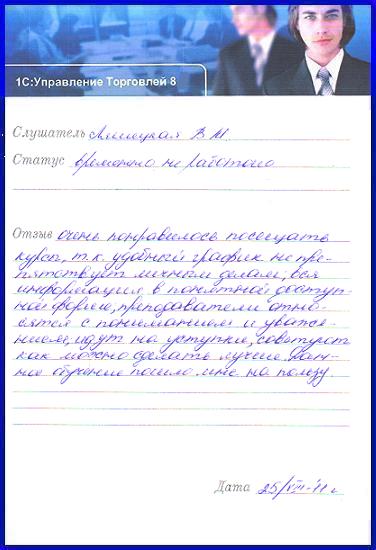 1С:Управление Торговлей 8
Слушатель В М
Статус временно не работаю
Отзыв очень понравилось посещать
курсы, т.к. удобный график не пре-
пятствует личным делам, вся
информация в понятной доступ-
ной форме, преподаватели отно-
сятся с пониманием и уваже-
нием, идут на уступки, советуют
как можно сделать лучше. Дан-
ное обучение пошло мне на пользу.
Дата 25/VIII-11 г